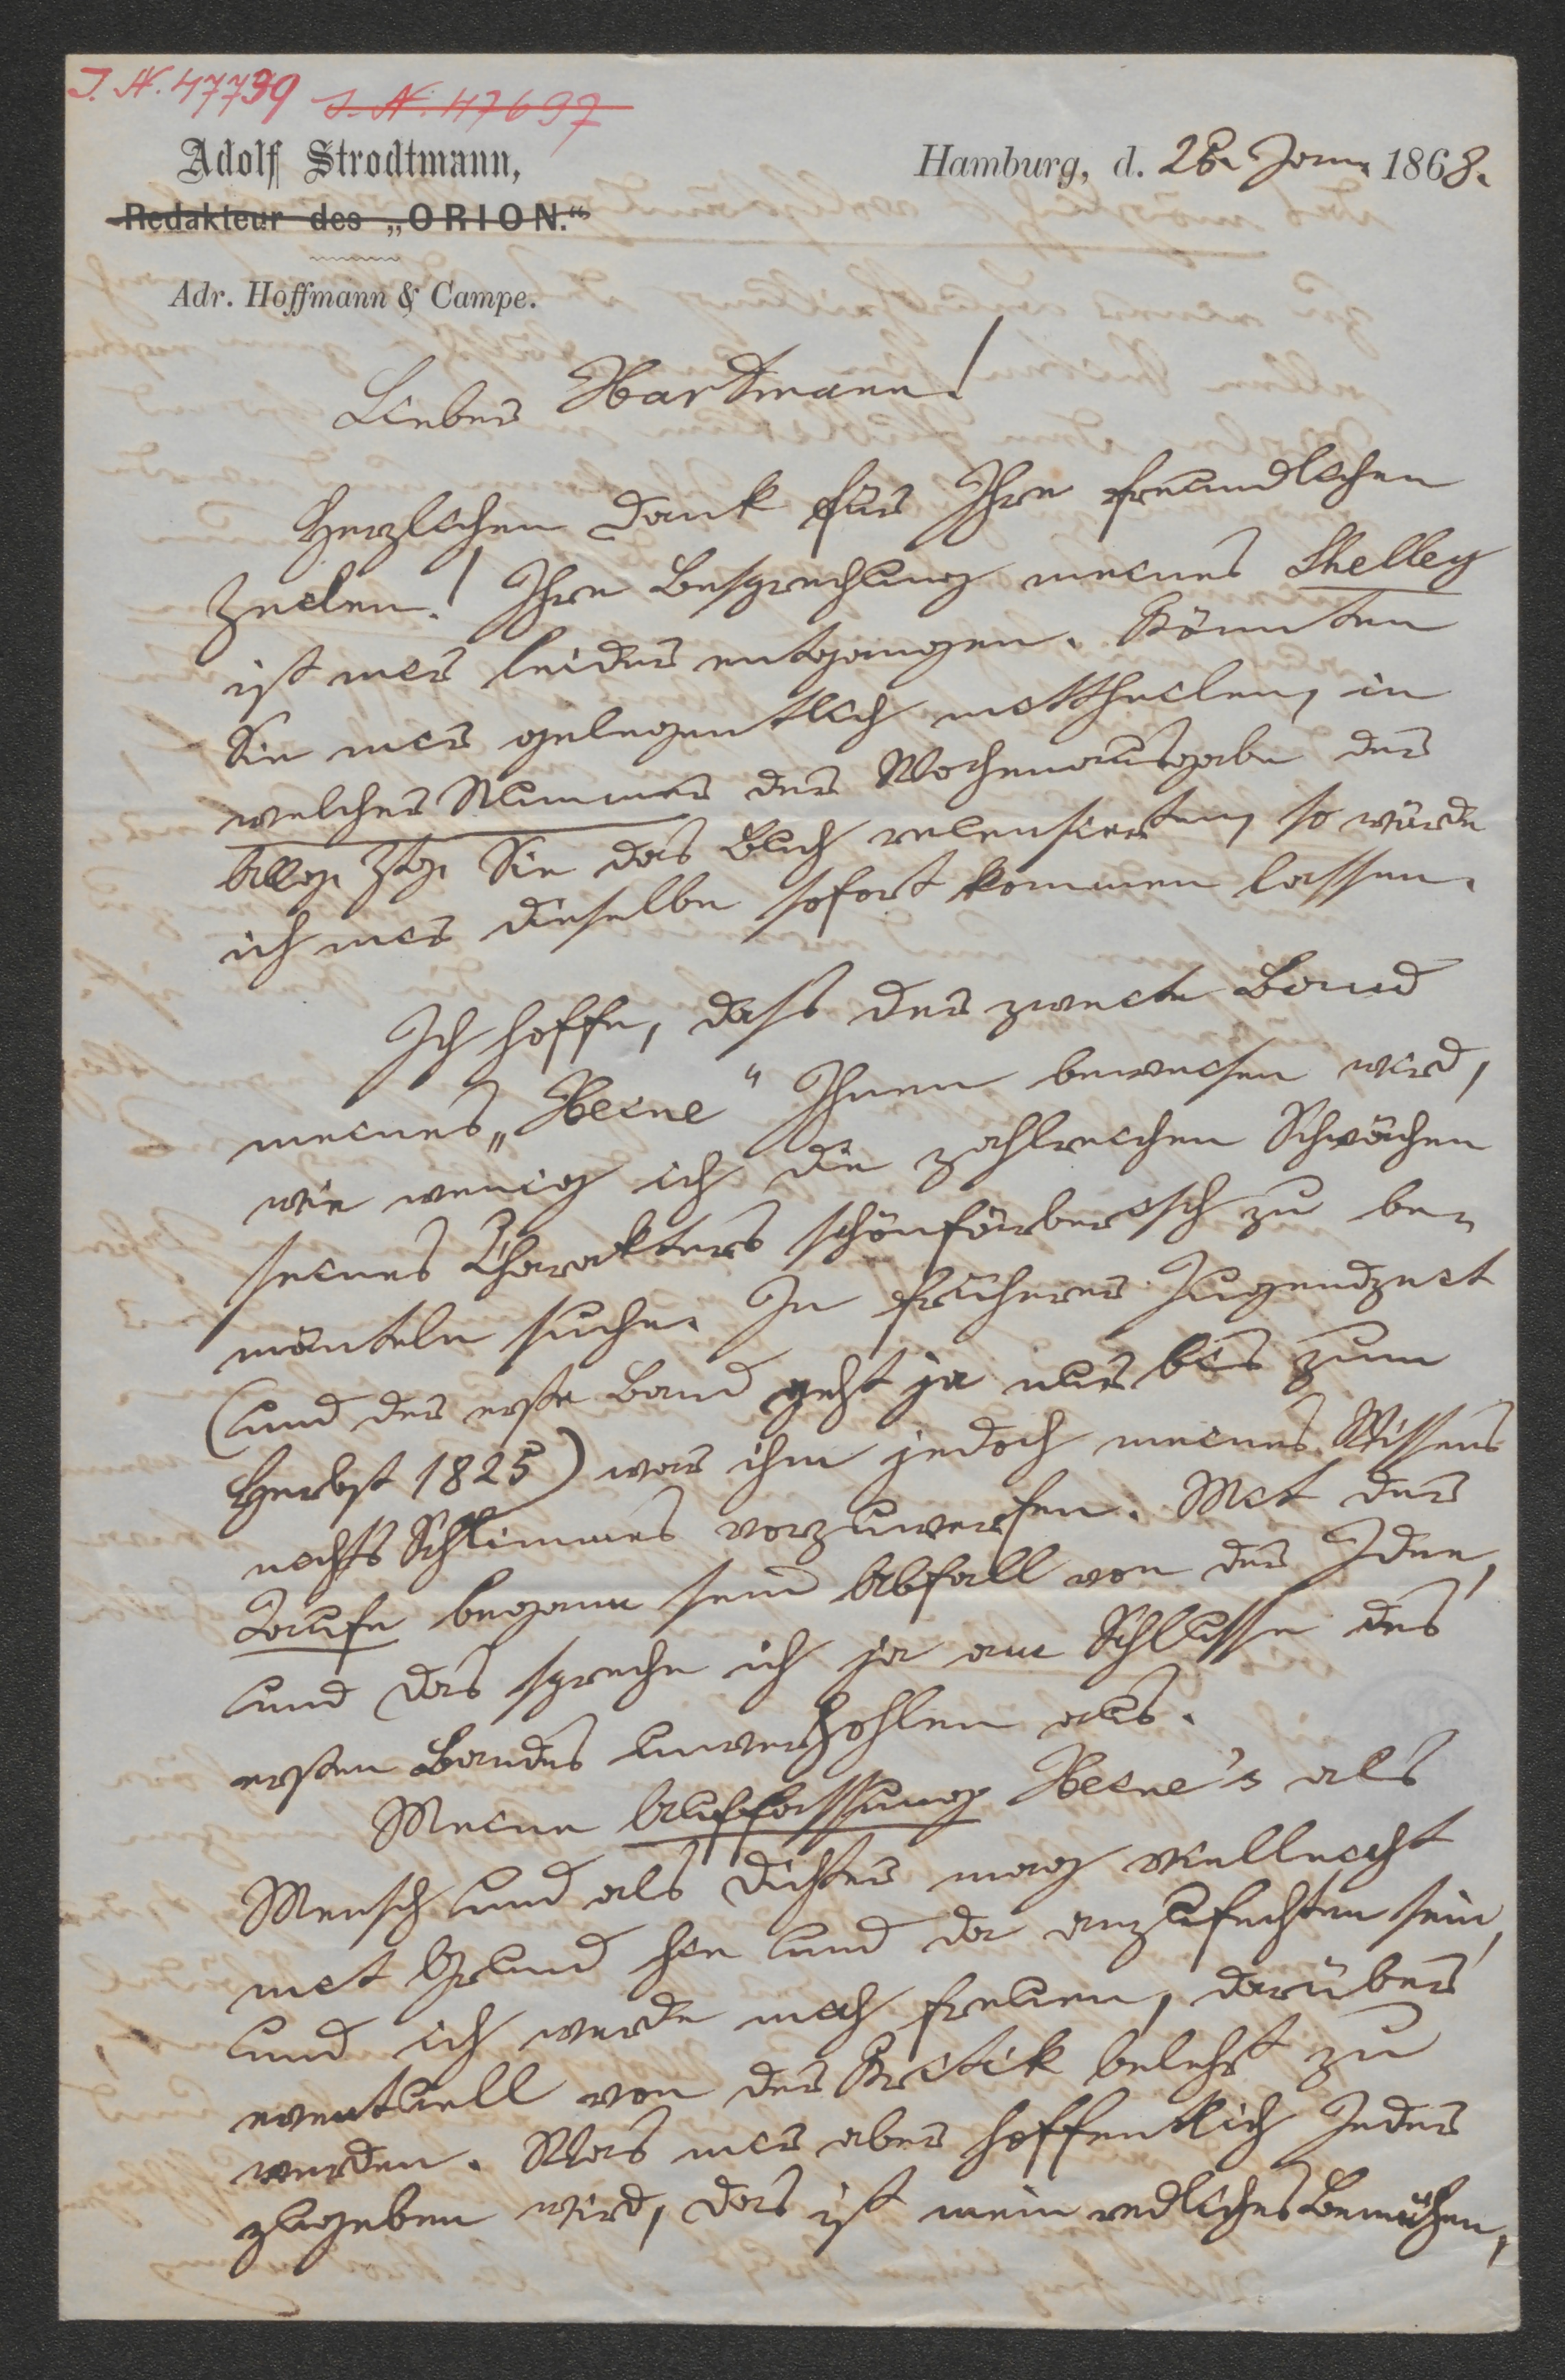 J. N. 47799 J. N. 47697
Adolf Strodtmann,
Redakteur des „ORION.“
Adr. Hoffmann & Campe.
Hamburg, d. 28. Jan. 1868.
Lieber Hartmann!
Herzlichen Dank für Ihre freundlichen
Zeilen! Ihre Besprechung meines Shelley
ist mir leider entgangen. Könnten
Sie mir gelegentlich mittheilen, in
welcher Nummer der Wochenausgabe der
Allg. Ztg. Sie das Buch recensierten, so würde
ich mir dieselbe sofort kommen lassen.
Ich hoffe, daß der zweite Band
meines „Heine“ Ihnen beweisen wird,
wie wenig ich die zahlreichen Schwächen
seines Charakters schönfärberisch zu be-
mänteln suche. In früherer Jugendzeit
(und der erste Band geht ja nur bis zum
Herbst 1825) war ihm jedoch meines Wissens
nichts Schlimmes vorzuwerfen. Mit der
Taufe begann sein Abfall von der Idee,
und das spreche ich ja am Schlusse des
ersten Bandes unverhohlen aus.
Meine Auffassung Heine's als
Mensch und als Dichter mag vielleicht
mit Grund hie und da anzufechten sein,
und ich werde mich freuen, darüber
eventuell von der Kritik belehrt zu
werden. Was mir aber hoffentlich Jeder
zugeben wird, das ist mein redliches Bemühen,